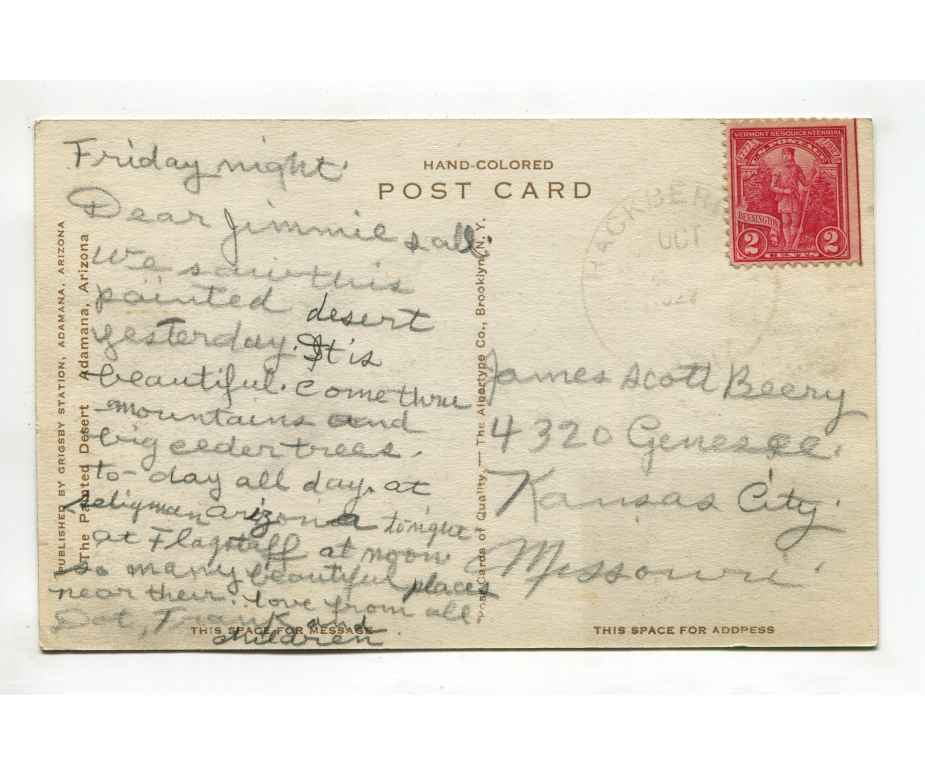 Friday night.
Dear Jimmie & all.
We saw this
painted desert
yesterday. It is
beautiful. come thru
mountains and
big ceder trees.
to-day all day. at
Seligman arizona tonight
at Flagstaff at noon
so many beautiful places
near their. love from all
Dot, Frank and
children
HAND-COLORED
POST CARD
VERMONT SESQUICENTENNIAL
U.S. POSTAGE
BENNINGTON
2 2
CENTS
OCT
James Scott Beery
4320 Genesee.
Kansas City
Missouri
PUBLISHED BY GRIGSBY STATION, ADAMANA, ARIZONA
The Painted Desert Adamana, Arizona
Post Cards of Quality. — The Albertype Co., Brooklyn, N. Y.
THIS SPACE FOR MESSAGE
THIS SPACE FOR ADDRESS